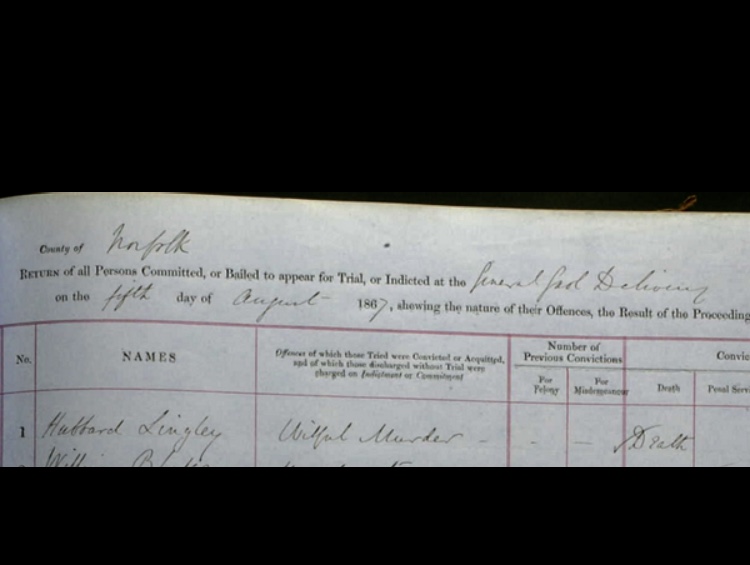 County of Norfolk
RETURN of all Persons Committed, or Bailed to appear for Trial, or Indicted at the General Gaol Delivery
on the fifth day of August 1867, shewing the nature of their Offences, the Result of the Proceeding
No. NAMES Offences of which those Tried were Convicted or Acquitted, and of which those discharged without Trial were charged on Indictment or Commitment Number of Previous Convictions For Felony For Misdemeanour Convic Death Penal Serv
1 Hubbard Lingley Wilful Murder - - - Death